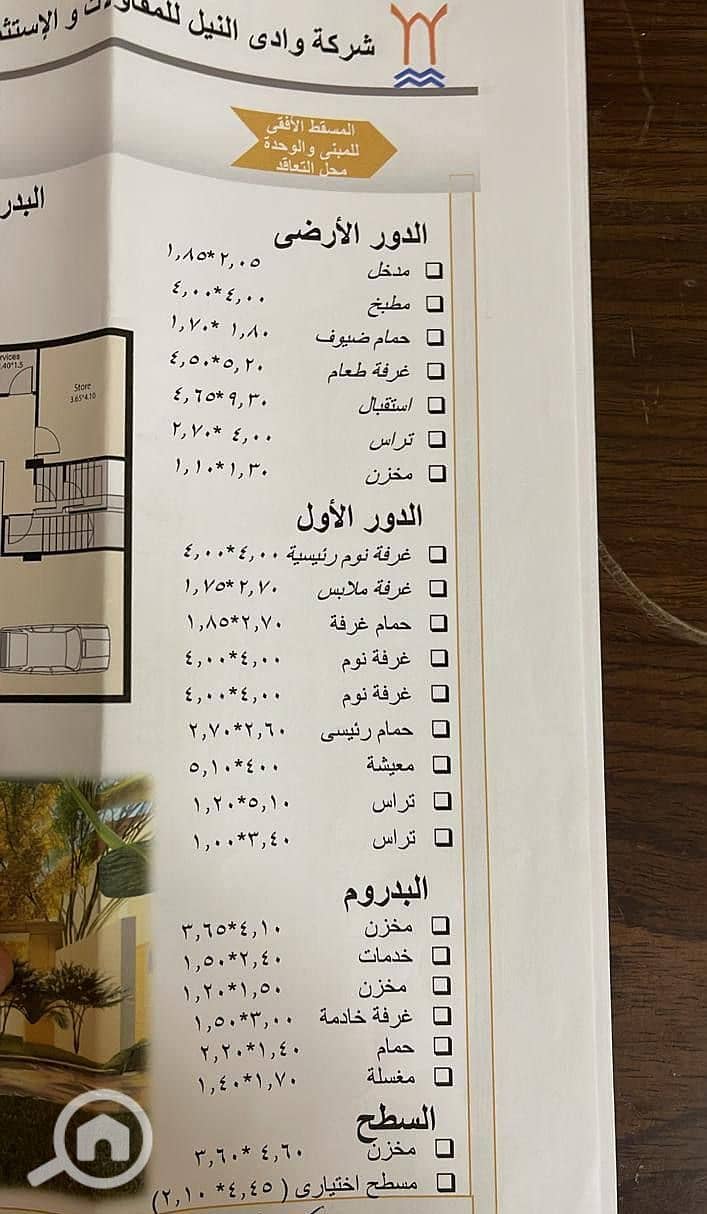 شركة وادى النيل للمقاولات و الإستثـ
المسقط الأفقى
للمبنى والوحدة
محل التعاقد
البدر
الدور الأرضى
مدخل ٢,٠٥*١,٨٥
مطبخ ٤,٠٠*٤,٠٠
حمام ضيوف ١,٨٠ *١,٧٠
غرفة طعام ٥,٢٠*٤,٥٠
استقبال ٩,٣٠*٤,٦٥
تراس ٤,٠٠ *٢,٧٠
مخزن ١,٣٠*١,١٠
الدور الأول
غرفة نوم رئيسية ٤,٠٠*٤,٠٠
غرفة ملابس ٢,٧٠*١,٧٥
حمام غرفة ٢,٧٠*١,٨٥
غرفة نوم ٤,٠٠*٤,٠٠
غرفة نوم ٤,٠٠*٤,٠٠
حمام رئيسى ٢,٦٠*٢,٧٠
معيشة ٤٠٠*٥,١٠
تراس ٥,١٠*١,٢٠
تراس ٣,٤٠*١,٠٠
البدروم
مخزن ٤,١٠*٣,٦٥
خدمات ٢,٤٠*١,٥٠
مخزن ١,٥٠*١,٢٠
غرفة خادمة ٣,٠٠*١,٥٠
حمام ١,٤٠*٢,٢٠
مغسلة ١,٧٠*١,٤٠
السطح
مخزن ٤,٦٠ *٣,٦٠
مسطح اختيارى ( ٤,٤٥* ٢,١٠)
rvices
.40*1.5
Store
3.65*4.10